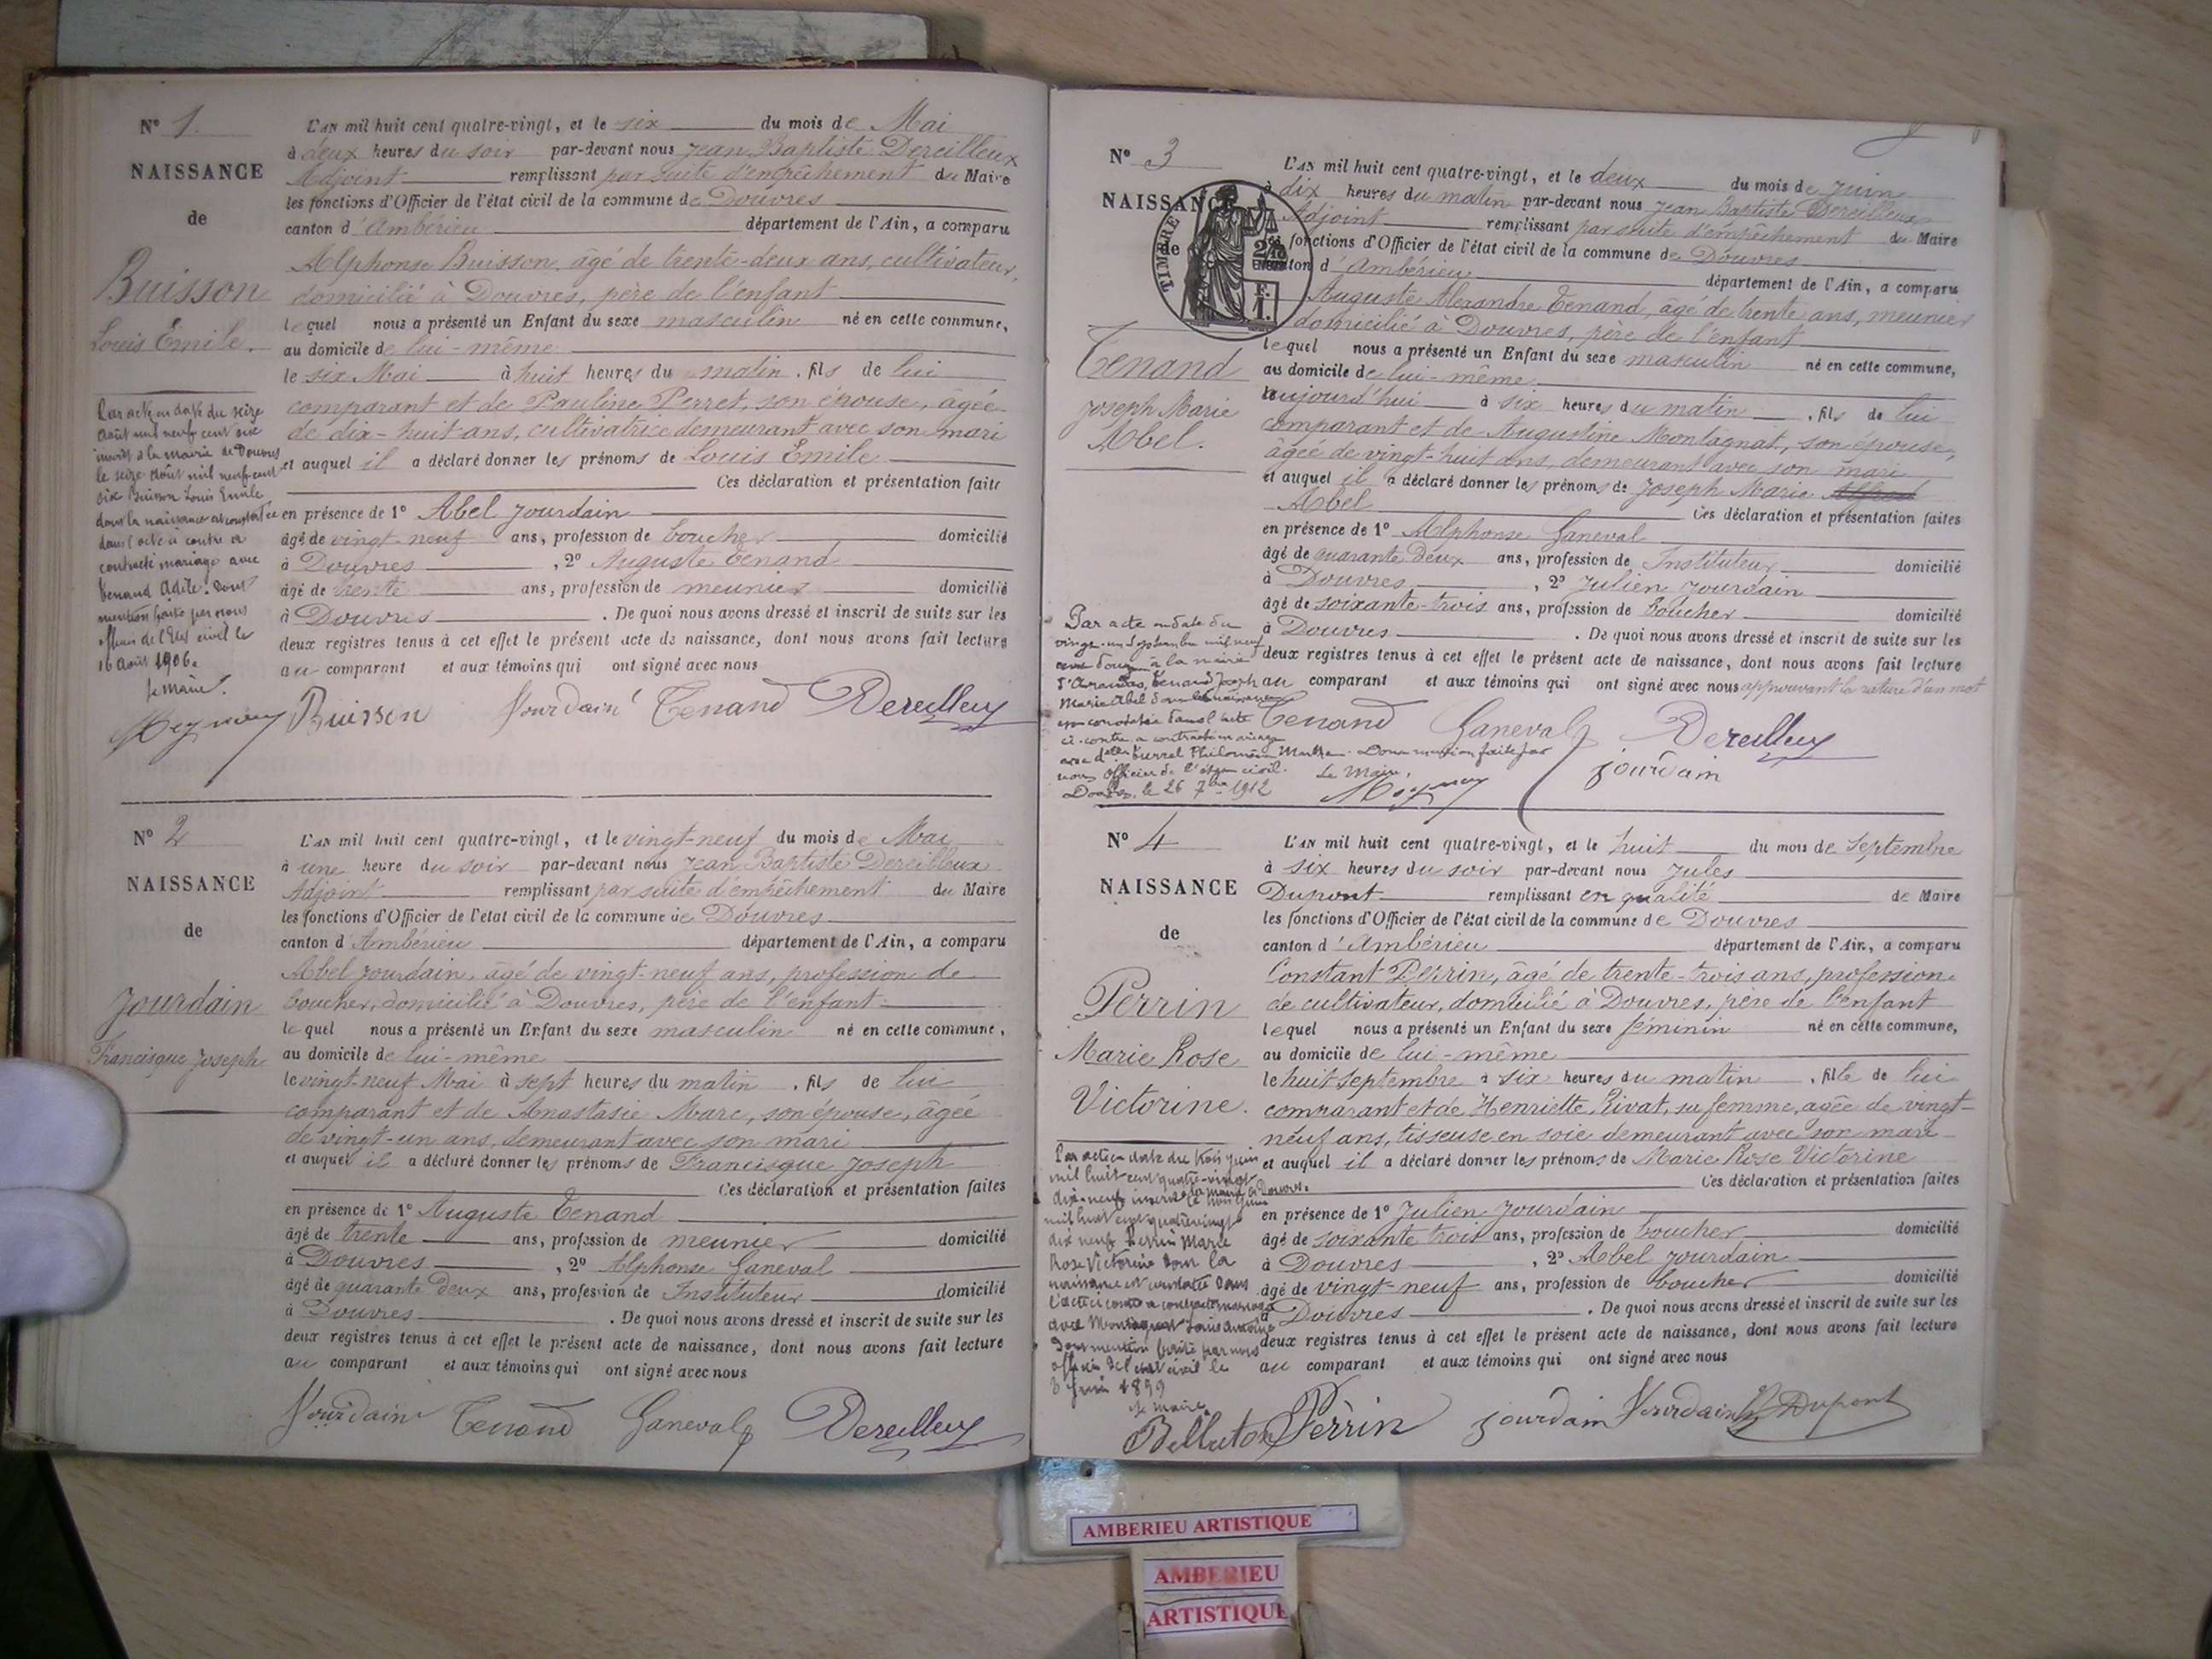 N° 1.
NAISSANCE
de
Buisson
Louis Emile.
L'AN mil huit cent quatre-vingt, et le six du mois de Mai
à deux heures du soir par-devant nous Jean Baptiste Dereilleux
Adjoint remplissant par suite d'empêchement du Maire
les fonctions d'Officier de l'état civil de la commune de Douvres
canton d'Ambérieu département de l'Ain, a comparu
Alphonse Buisson, âgé de trente-deux ans, cultivateur,
domicilié à Douvres, père de l'enfant
lequel nous a présenté un Enfant du sexe masculin né en cette commune,
au domicile de lui-même
le six Mai à huit heures du matin, fils de lui
comparant et de Pauline Perret, son épouse, âgée
de dix-huit ans, cultivatrice demeurant avec son mari
et auquel il a déclaré donner les prénoms de Louis Emile
Ces déclaration et présentation faite
en présence de 1° Abel Jourdain
âgé de vingt-neuf ans, profession de boucher domicilié
à Douvres, 2° Auguste Tenand
âgé de trente ans, profession de meunier domicilié
à Douvres. De quoi nous avons dressé et inscrit de suite sur les
deux registres tenus à cet effet le présent acte de naissance, dont nous avons fait lecture
au comparant et aux témoins qui ont signé avec nous
Par acte en date du seize
Août mil neuf cent six
inscrit à la mairie de Douvres
le seize Août mil neuf cent
six Buisson Louis Emile
dont la naissance est constatée
dans l'acte ci contre a
contracté mariage avec
Tenand Adèle. Dont
mention faite par nous
officier de l'Etat civil le
16 Août 1906.
le Maire.
Buisson Jourdain Tenand Dereilleux
N° 2
NAISSANCE
de
Jourdain
Francisque Joseph
L'AN mil huit cent quatre-vingt, et le vingt-neuf du mois de Mai
à une heure du soir par-devant nous Jean Baptiste Dereilleux
Adjoint remplissant par suite d'empêchement du Maire
les fonctions d'Officier de l'état civil de la commune de Douvres
canton d'Ambérieu département de l'Ain, a comparu
Abel Jourdain, âgé de vingt-neuf ans, profession de
boucher, domicilié à Douvres, père de l'enfant
lequel nous a présenté un Enfant du sexe masculin né en cette commune,
au domicile de lui-même
le vingt-neuf Mai à sept heures du matin, fils de lui
comparant et de Anastasie Marc, son épouse, âgée
de vingt-un ans, demeurant avec son mari
et auquel il a déclaré donner les prénoms de Francisque Joseph
Ces déclaration et présentation faites
en présence de 1° Auguste Tenand
âgé de trente ans, profession de meunier domicilié
à Douvres, 2° Alphonse Ganeval
âgé de quarante deux ans, profession de Instituteur domicilié
à Douvres. De quoi nous avons dressé et inscrit de suite sur les
deux registres tenus à cet effet le présent acte de naissance, dont nous avons fait lecture
au comparant et aux témoins qui ont signé avec nous
Jourdain Tenand Ganeval Dereilleux
N° 3
NAISSANCE
de
TIMBRE
Tenand
Joseph Marie
Abel.
L'AN mil huit cent quatre-vingt, et le deux du mois de Juin
à dix heures du matin par-devant nous Jean Baptiste Dereilleux
Adjoint remplissant par suite d'empêchement du Maire
les fonctions d'Officier de l'état civil de la commune de Douvres
canton d'Ambérieu département de l'Ain, a comparu
Auguste Alexandre Tenand, âgé de trente ans, meunier
domicilié à Douvres, père de l'enfant
lequel nous a présenté un Enfant du sexe masculin né en cette commune,
au domicile de lui-même
aujourd'hui à six heures du matin, fils de lui
comparant et de Augustine Montagnat, son épouse,
âgée de vingt-huit ans, demeurant avec son mari
et auquel il a déclaré donner les prénoms de Joseph Marie Alfred
Abel Ces déclaration et présentation faites
en présence de 1° Alphonse Ganeval
âgé de quarante deux ans, profession de Instituteur domicilié
à Douvres, 2° Julien Jourdain
âgé de soixante-trois ans, profession de boucher domicilié
à Douvres. De quoi nous avons dressé et inscrit de suite sur les
deux registres tenus à cet effet le présent acte de naissance, dont nous avons fait lecture
au comparant et aux témoins qui ont signé avec nous approuvant la rature d'un mot
Par acte en date du
vingt-un septembre mil neuf
cent douze à la mairie
d'Arandas, Tenand Joseph
Marie Abel dont la naissance
est constatée dans l'acte
ci-contre a contracté mariage
avec Philomène Marthe. Dont mention faite par
nous officier de l'état civil. Le Maire,
Douvres, le 26 7bre 1912
Tenand Ganeval Dereilleux
Jourdain
N° 4
NAISSANCE
de
Perrin
Marie Rose
Victorine.
L'AN mil huit cent quatre-vingt, et le huit du mois de Septembre
à six heures du soir par-devant nous Jules
Dupont remplissant en qualité de Maire
les fonctions d'Officier de l'état civil de la commune de Douvres
canton d'Ambérieu département de l'Ain, a comparu
Constant Perrin, âgé de trente-trois ans, profession
de cultivateur, domicilié à Douvres, père de l'enfant
lequel nous a présenté un Enfant du sexe féminin né en cette commune,
au domicile de lui-même
le huit Septembre à six heures du matin, fille de lui
comparant et de Henriette Rivat, sa femme, agée de vingt-
neuf ans, tisseuse en soie demeurant avec son mari
et auquel il a déclaré donner les prénoms de Marie Rose Victorine
Ces déclaration et présentation faites
en présence de 1° Julien Jourdain
âgé de soixante trois ans, profession de boucher domicilié
à Douvres, 2° Abel Jourdain
âgé de vingt-neuf ans, profession de boucher domicilié
à Douvres. De quoi nous avons dressé et inscrit de suite sur les
deux registres tenus à cet effet le présent acte de naissance, dont nous avons fait lecture
au comparant et aux témoins qui ont signé avec nous
Par acte en date du trois juin
mil huit cent quatre-vingt
dix-neuf inscrit à la mairie de Douvres
le trois juin
mil huit cent quatre vingt
dix neuf Perrin Marie
Rose Victorine dont la
naissance est constatée dans
l'acte ci contre a contracté mariage
avec Montagnat Louis Antoine
Dont mention faite par nous
officier de l'état civil le
3 juin 1899
le maire
Perrin Jourdain Jourdain Dupont
AMBERIEU ARTISTIQUE
AMBERIEU
ARTISTIQUE